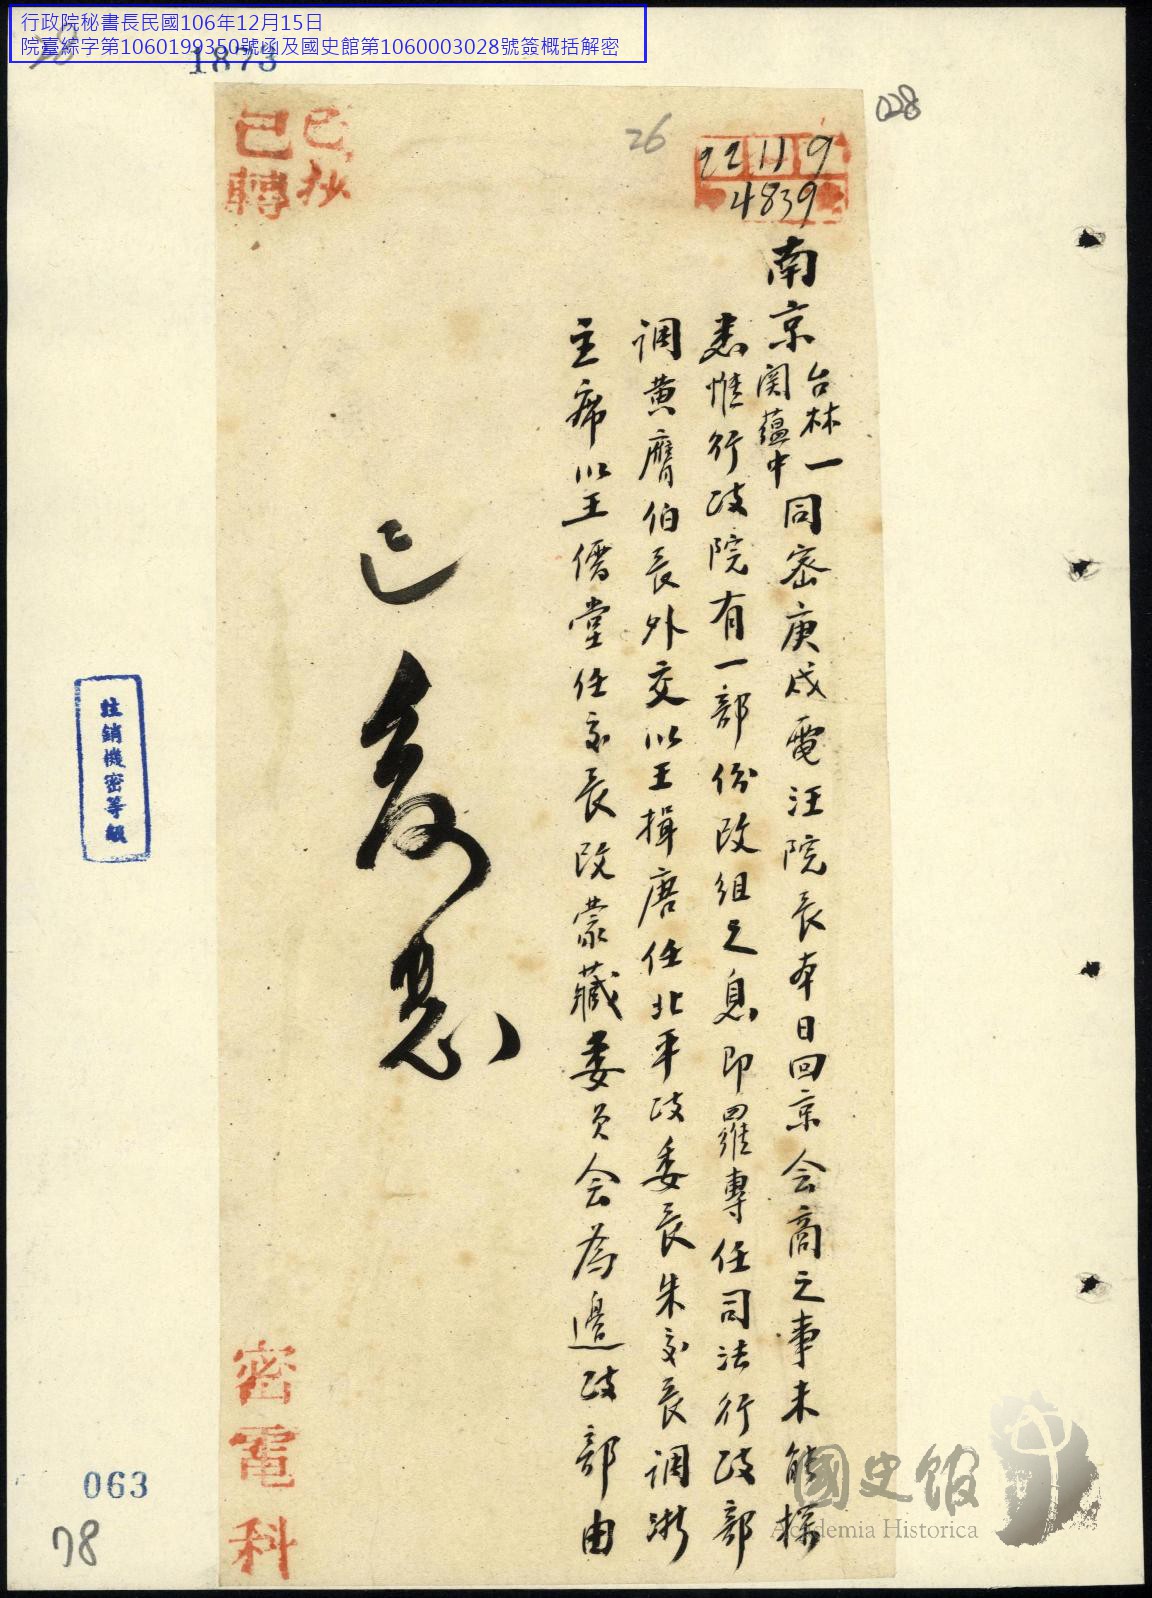 行政院秘書長民國106年12月15日
院臺綜字第1060199350號函及國史館第1060003028號簽概括解密
1873
028
26
22 11 9
4839
已抄
已轉
南京
台林一
関蘊中
同密庚戌電汪院長本日回京会商之事未能探
悉惟行政院有一部份改組之息即羅專任司法行政部
调黄膺伯長外交以王揖唐任北平政委長朱家長调浙
主席以王儒堂任家長改蒙藏委员会為邊政部由
已
註銷機密等級
密電科
063
78
國史館
Academia Historica